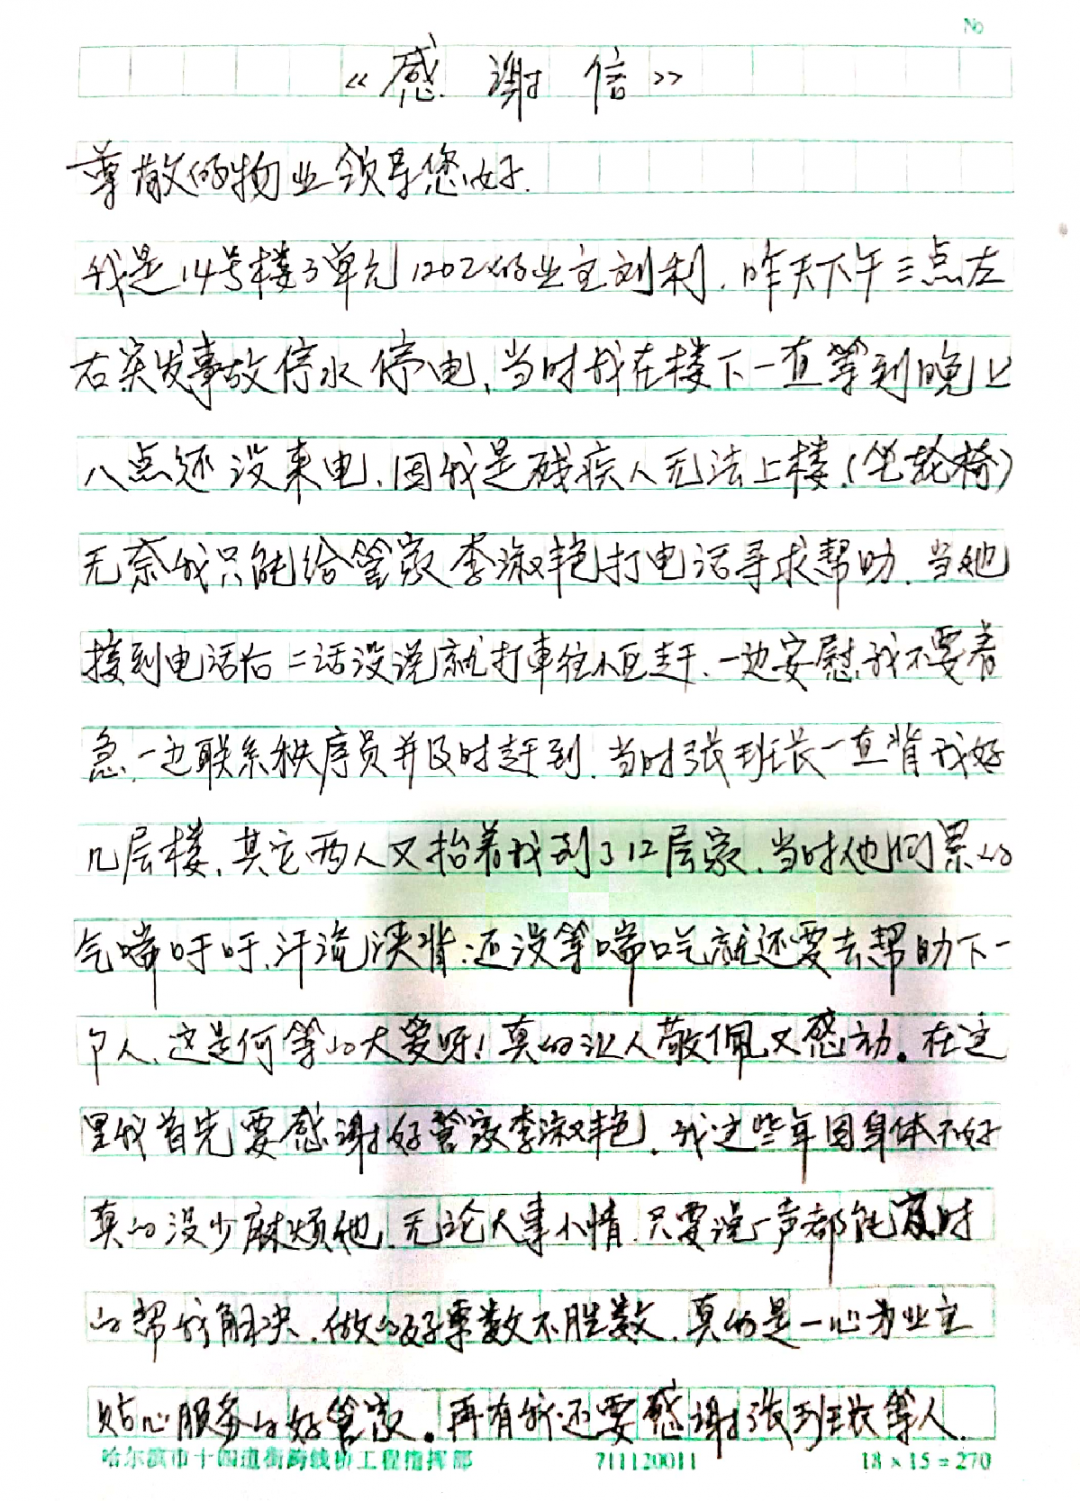 No
《感谢信》
尊敬的物业领导您好.
我是14号楼3单元1202的业主刘利.昨天下午三点左
右突发事故停水停电,当时我在楼下一直等到晚上
八点还没来电,因我是残疾人无法上楼.(坐轮椅)
无奈我只能给管家李淑艳打电话寻求帮助.当她
接到电话后二话没说就打车往小区赶.一边安慰我不要着
急,一边联系秩序员并及时赶到.当时张班长一直背我好
几层楼,其它两人又抬着我到了12层家.当时他们累的
气喘吁吁,汗流浃背.还没等喘口气就还要去帮助下一
个人,这是何等的大爱呀!真的让人敬佩又感动。在这
里我首先要感谢好管家李淑艳.我这些年因身体不好
真的没少麻烦他,无论大事小情.只要说一声都能及时
的帮我解决.做的好事数不胜数.真的是一心为业主
贴心服务的好管家。再有我还要感谢张班长等人.
哈尔滨市十四道街跨线桥工程指挥部 711120011 18×15=270